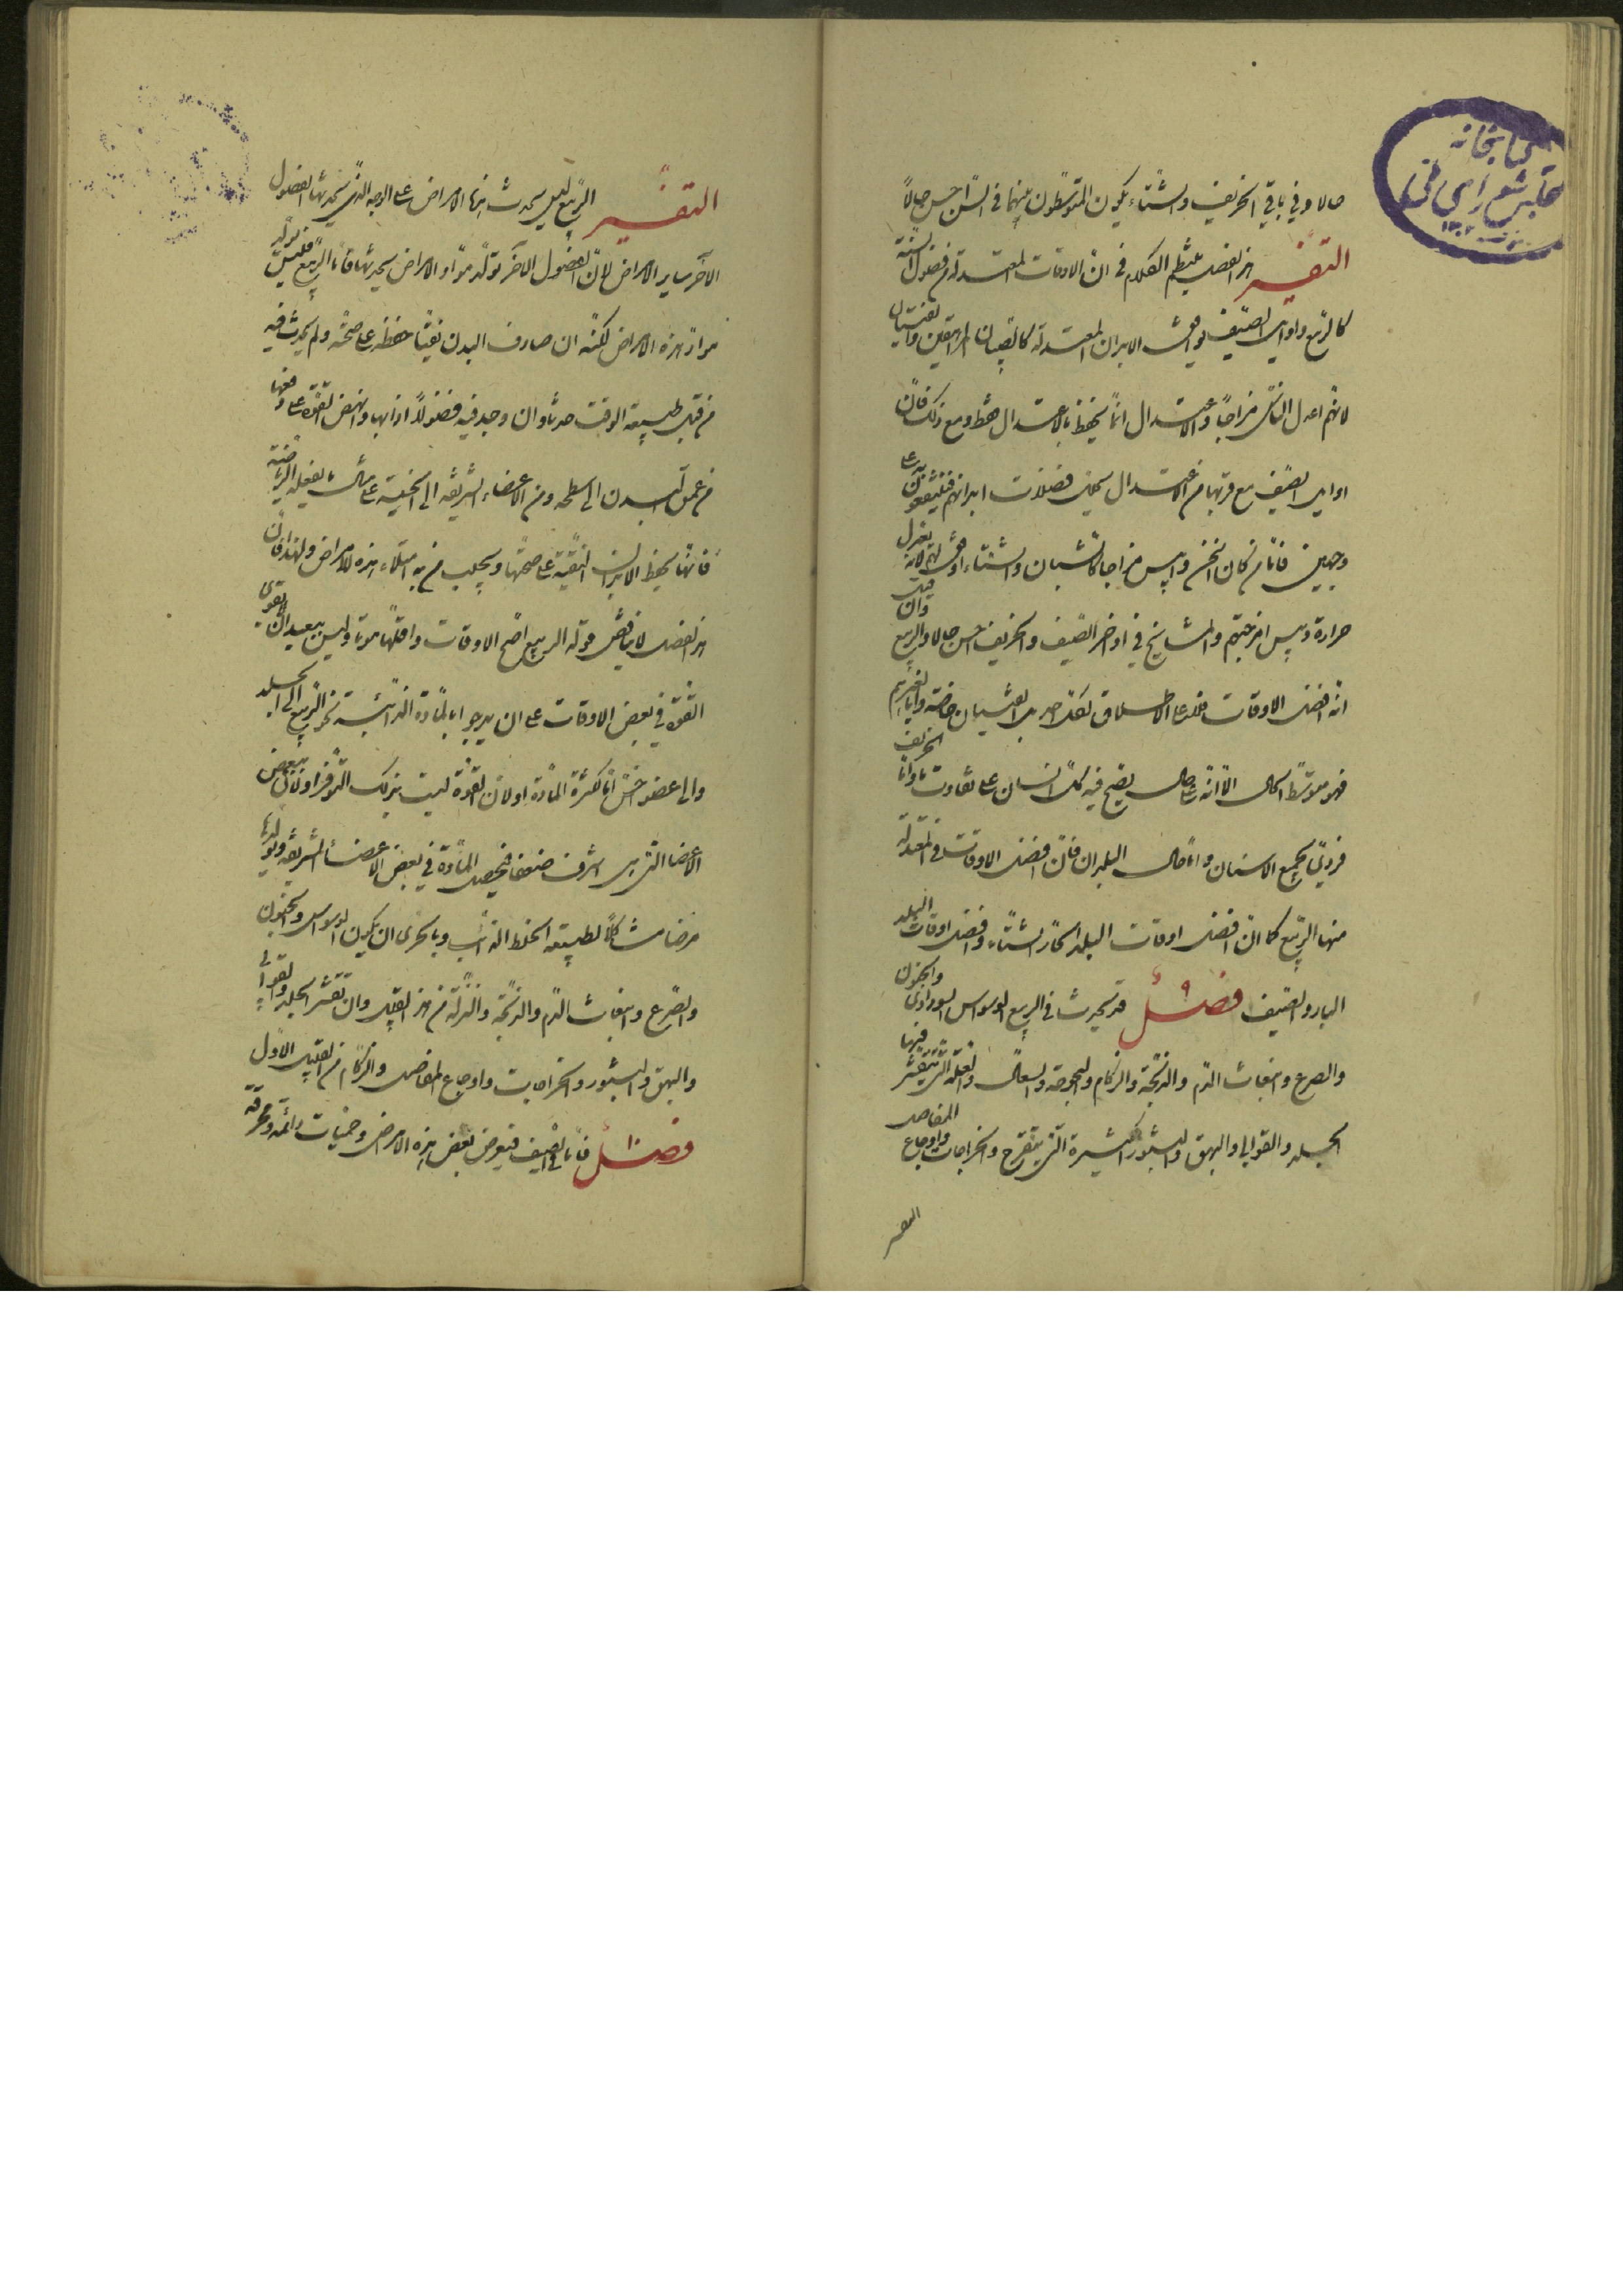 كتابخانه
مجلس شورای ملی
حالا وفي باقي الخريف والشتاء يكون المتوسطون بينهما في السن احسن حالاً
التفسير هذا الفصل ينتظم الكلام في ان الاوقات المعتدلة من فصول السنة
كالربيع واوايل الصيف توافق الابدان المعتدلة كالصبيان المراهقين والفتيان
لانهم اعدل الناس مزاجاً والاعتدال انما يحفظ بالاعتدال فقط ومع ذلك فان
اوايل الصيف مع قربها من الاعتدال يحلل فضلات ابدانهم فينتفعون به على
وجهين فاما من كان اسخن وايبس مزاجا كالشبان والشتاء اوفق لهم لانه يعدل
حرارة ويبس امزجتهم والمشايخ في اواخر الصيف والخريف احسن حالا والربيع وان قيل
انه افضل الاوقات فلعله على الاطلاق لكل احد بل الصبيان خاصة واما لغيرهم
فهو متوسط الحال الا انه على حال يصح فيه كل انسان على تفاوت ما واما الخريف
فردي لجميع الاسنان واما حال البلدان فان افضل الاوقات في المعتدلة
منها الربيع كما ان افضل اوقات البلد الحار الشتاء وافضل اوقات البلد
البارد الصيف فصل ٩ قد يحدث في الربيع الوسواس السوداوي والجنون
والصرع وانبعاث الدم والذبحة والزكام والبحوحة والسعال والعلة التي يتقشر فيها
الجلد والقوابي والبهق والبثور الكثيرة التي تتقرح والخراجات واوجاع المفاصل
التفسير الربيع ليس يحدث هذه الامراض على الوجه الذي يحدثها الفصول
الآخر ساير الامراض لان الفصول الآخر تولد مواد الامراض يحدثها فاما الربيع فليس يولد
مواد هذه الامراض لكنه ان صادف البدن نقيا حفظه على صحته ولم يحدث فيه
من قبل طبيعة الوقت حدثا وان وجد فيه فضولاً اذابها وانهض القوة على دفعها
من عمق البدن الى سطحه ومن الاعضاء الشريفة الى الخسيسة على مثال ما يفعله الرياضة
فانها يحفظ الابدان النقية على صحتها ويجلب من به امتلاء هذه الامراض ولهذا فان
هذا الفصل لا يناقض قوله الربيع اصح الاوقات واقلها موتا وليس ببعيد ان لا يقوى
القوة في بعض الاوقات على ان يدفع بالمادة الذائبة نحو الربيع الى الجلد
والى عضو اخس اما لكثرة المادة او لان القوة ليست بتلك التوفر او لان بعض
الاعضا التي هي اشرف ضعفا فيحصل المادة في بعض الاعضاء الشريفة ويولد بها
مرضا مشاكلاً لطبيعة الخلط الذائب وبالحرى ان يكون الوسواس والجنون
والصرع وانبعاث الدم والذبحة والنزلة من هذا القبيل وان تقشر الجلد والقوابي
والبهق والبثور والخراجات واوجاع المفاصل والزكام من القبيل الاول
فصل ١٠ فاما في الصيف فيعرض بعض هذه الامراض وحميات دائمة ومحرقة